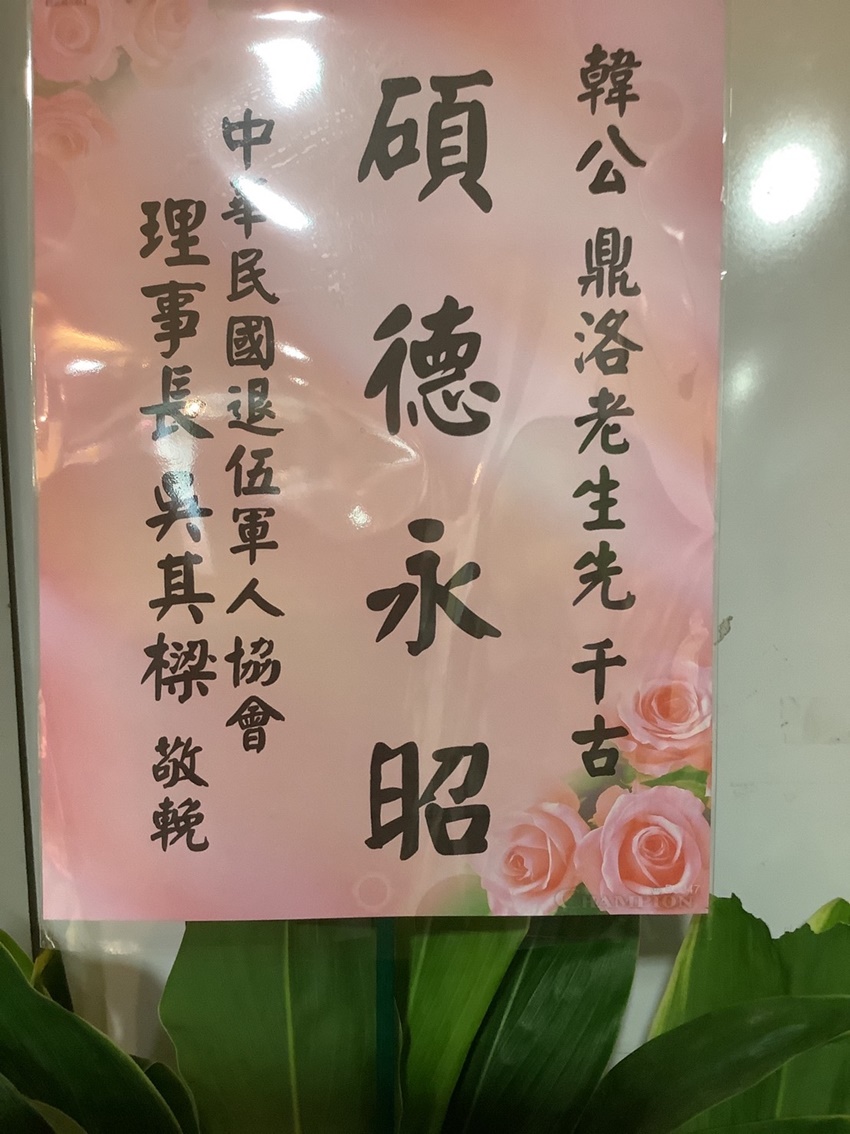 韓公 鼎洛老生先 千古
碩德永昭
中華民國退伍軍人協會
理事長 吳其樑 敬輓
CHAMPION